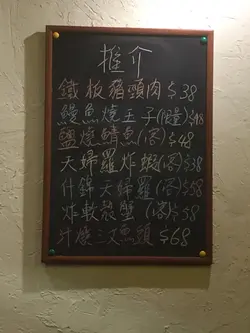 推介
鐵板豬頸肉$38
鰻魚燒玉子(限量)$48
鹽燒鯖魚(客)$48
天婦羅炸蝦(客)$38
什錦天婦羅(客)$58
炸軟殼蟹(客)$58
汁燒三文魚頭$68